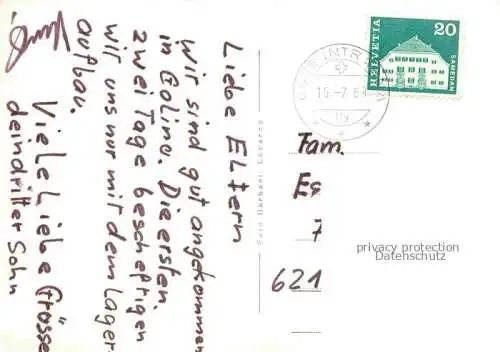 Liebe Eltern
wir sind gut angekommen
in Eoline. Die ersten
zwei Tage bescheftigen
wir uns nur mit dem Lager-
aufbau.
Viele Liebe Grösse
dein dritter Sohn
Foto Garbani, Locarno
15 -7.6
20
HELVETIA
SAMEDAN
Fam.
Es
7
621
privacy protection
Datenschutz